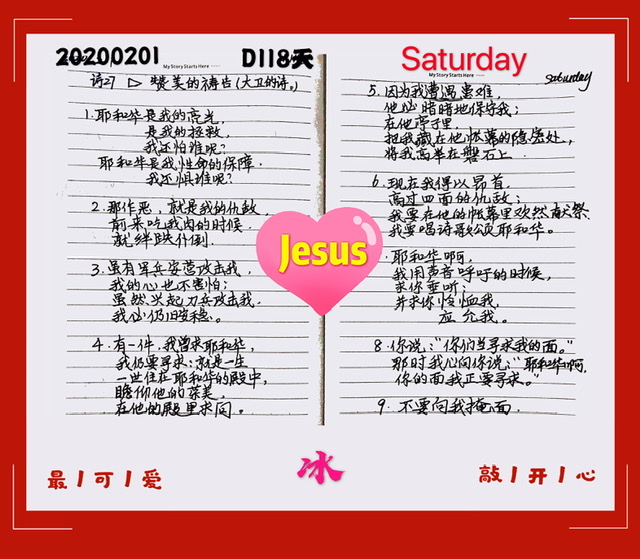 20200201
D118天
Saturday
My Story Starts Here
诗27 ▷ 赞美的祷告(大卫的诗。)
1. 耶和华是我的亮光,
是我的拯救,
我还怕谁呢?
耶和华是我性命的保障.
我还惧谁呢?
2. 那作恶,就是我的仇敌,
前来吃我肉的时候.
就绊跌仆倒.
3. 虽有军兵安营攻击我,
我的心也不害怕;
虽然兴起刀兵攻击我.
我仍旧安稳.
4. 有一件,我曾求耶和华,
我仍要寻求:就是一生
一世住在耶和华的殿中,
瞻仰他的荣美,
在他的殿里求问。
My Story Starts Here
saturday
5. 因为我遭遇患难,
他必暗暗地保守我;
在他亭子里,
把我藏在他帐幕的隐密处,
将我高举在磐石上.
6. 现在我得以昂首,
高过四面的仇敌;
我要在他的帐幕里欢然献祭.
我要唱诗歌颂耶和华。
耶和华啊,
我用声音呼吁的时候,
求你垂听;
并求你怜恤我,
应允我。
8. 你说:“你们当寻求我的面。”
那时我心向你说:“耶和华啊,
你的面我正要寻求。”
9. 不要向我掩面.
Jesus
最/可/爱
冰
敲/开/心